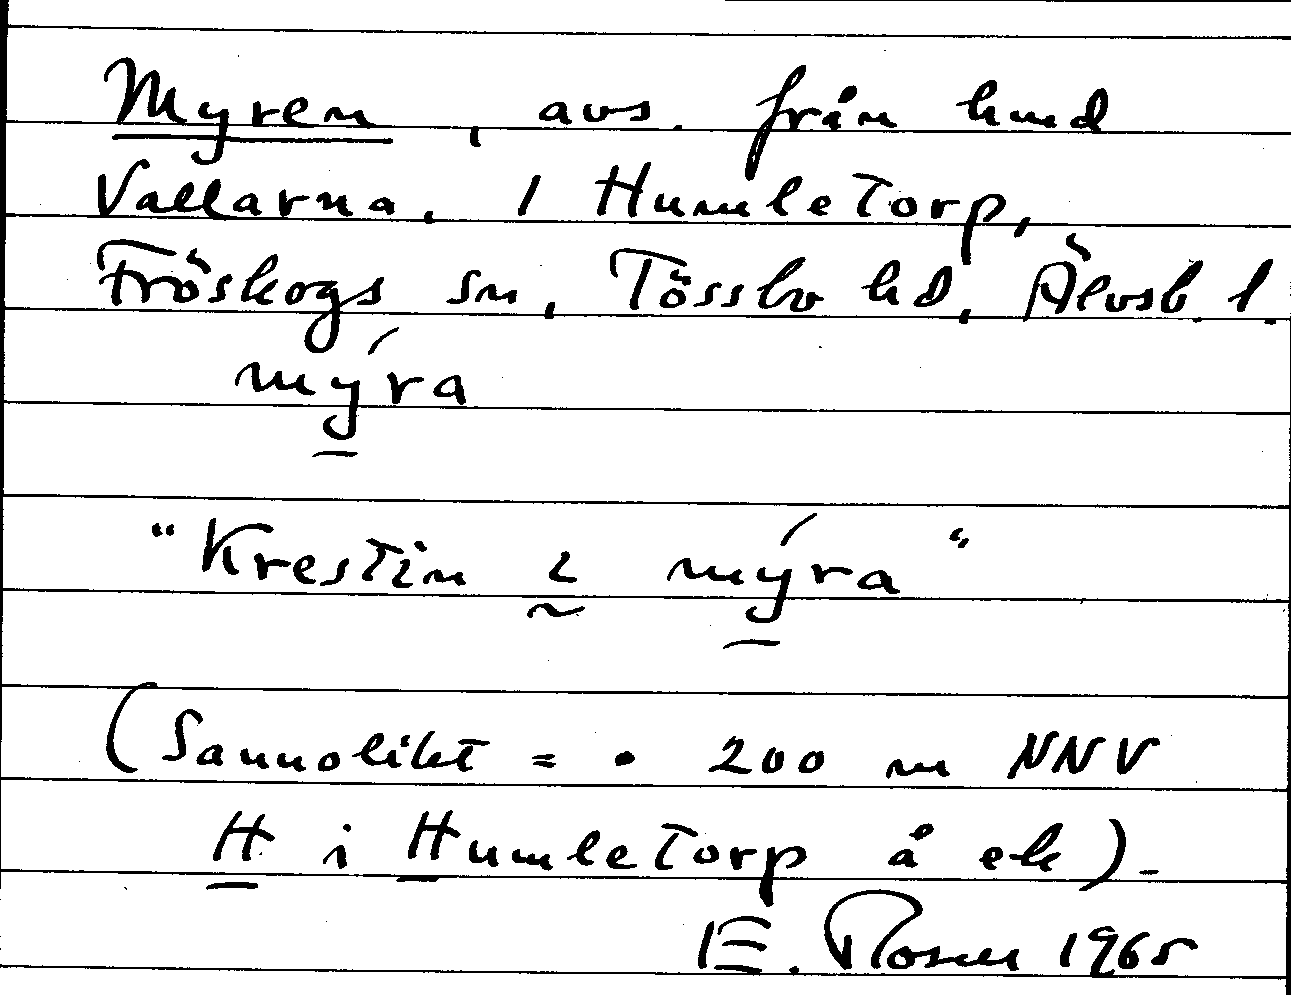 Myren, avs. från hmd
Vallarna, 1 Humletorp,
Fröskogs sn, Tössbo hd, Älvsb. l.
mýra
"Krestin i mýra"
(Sannolikt = • 200 m NNV
H i Humletorp å ek).
E. Rosell 1965